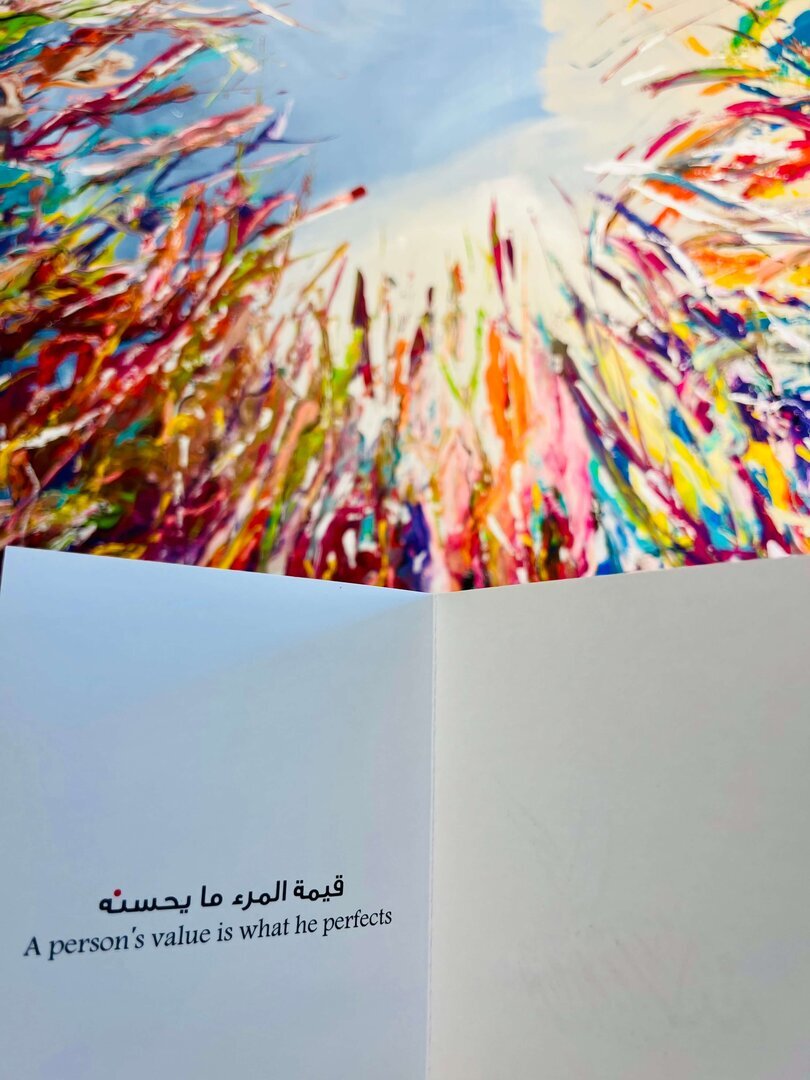 قيمة المرء ما يحسنه
A person's value is what he perfects